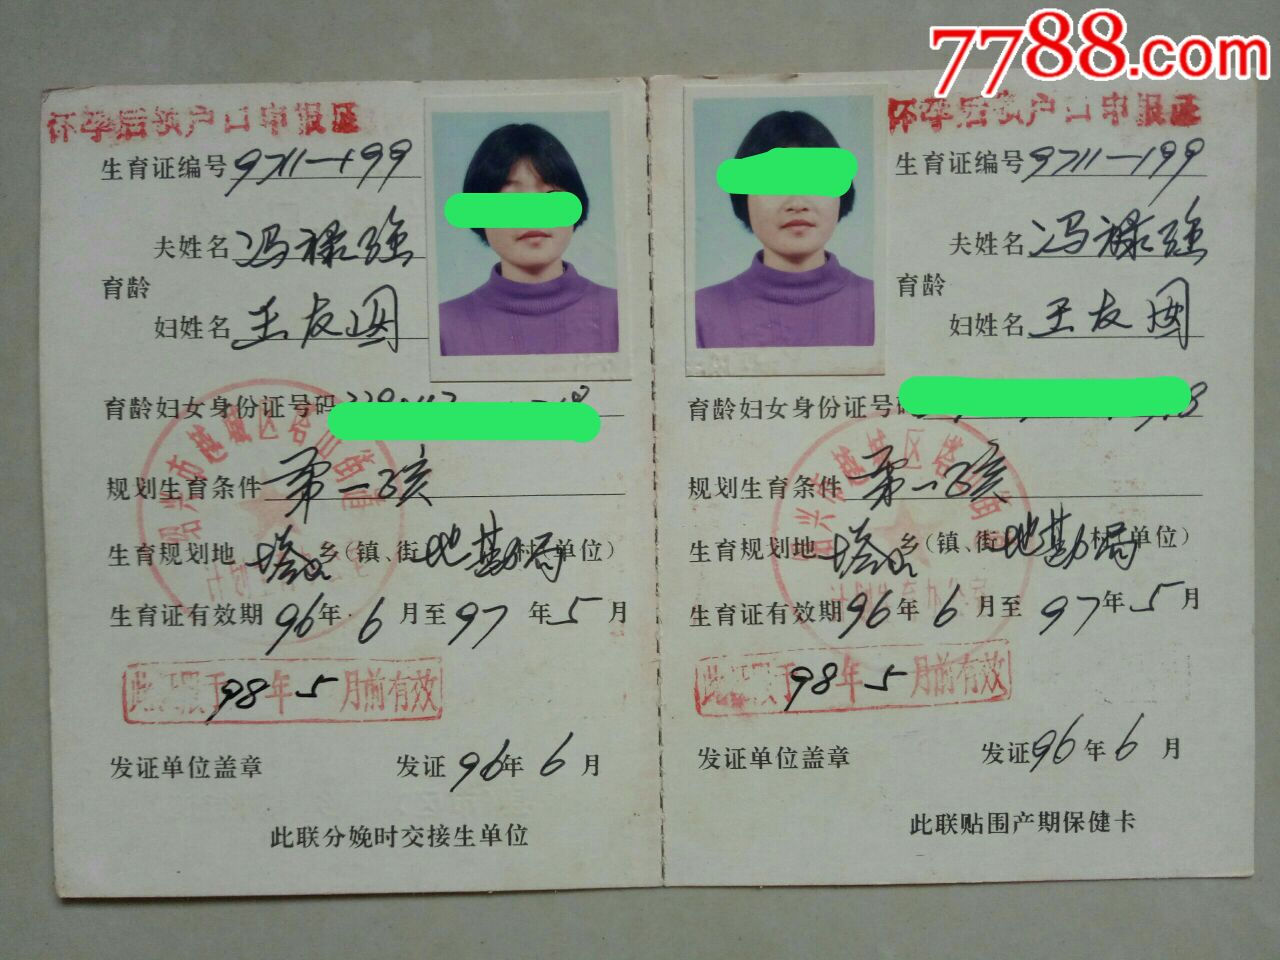 7788.com
怀孕后领户口申报证
生育证编号 9711-199
夫姓名 冯禄强
育龄
妇姓名 王友国
育龄妇女身份证号码
规划生育条件 第一孩
生育规划地 塔山 乡(镇、街 地勘局 村 单位)
生育证有效期 96 年 6 月至 97 年 5 月
此证限于 98 年 5 月前有效
发证单位盖章 发证 96 年 6 月
此联分娩时交接生单位
绍兴市越城区塔山街道
怀孕后领户口申报证
生育证编号 9711-199
夫姓名 冯禄强
育龄
妇姓名 王友国
育龄妇女身份证号码
规划生育条件 第一孩
生育规划地 塔山 乡(镇、街 地勘局 村 单位)
生育证有效期 96 年 6 月至 97 年 5 月
此证限于 98 年 5 月前有效
发证单位盖章 发证 96 年 6 月
此联贴围产期保健卡
绍兴市越城区塔山街道